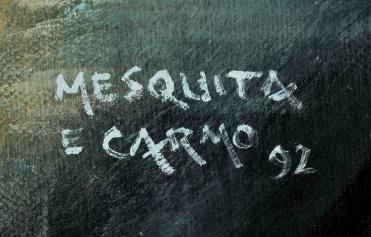 MESQUITA
E CARMO 92